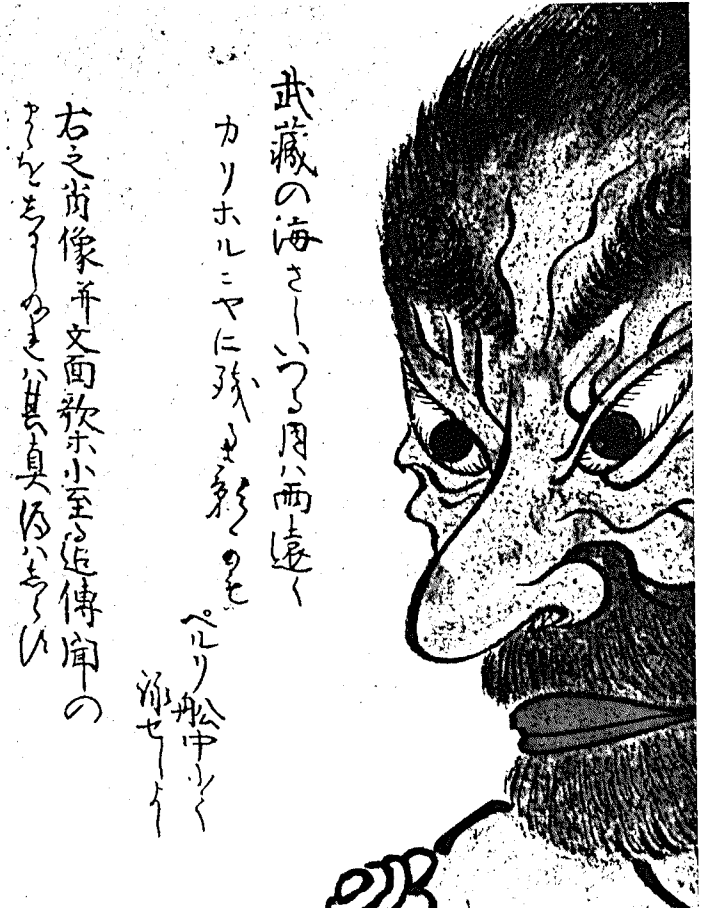 武藏の海さしいつる月ハ
カリホルニヤに残る影かも
ペルリ船中にて
詠セしよし
右之肖像并文面歌ホに至る迄傳聞の
まゝをしるしぬれハ其真偽ハしらす